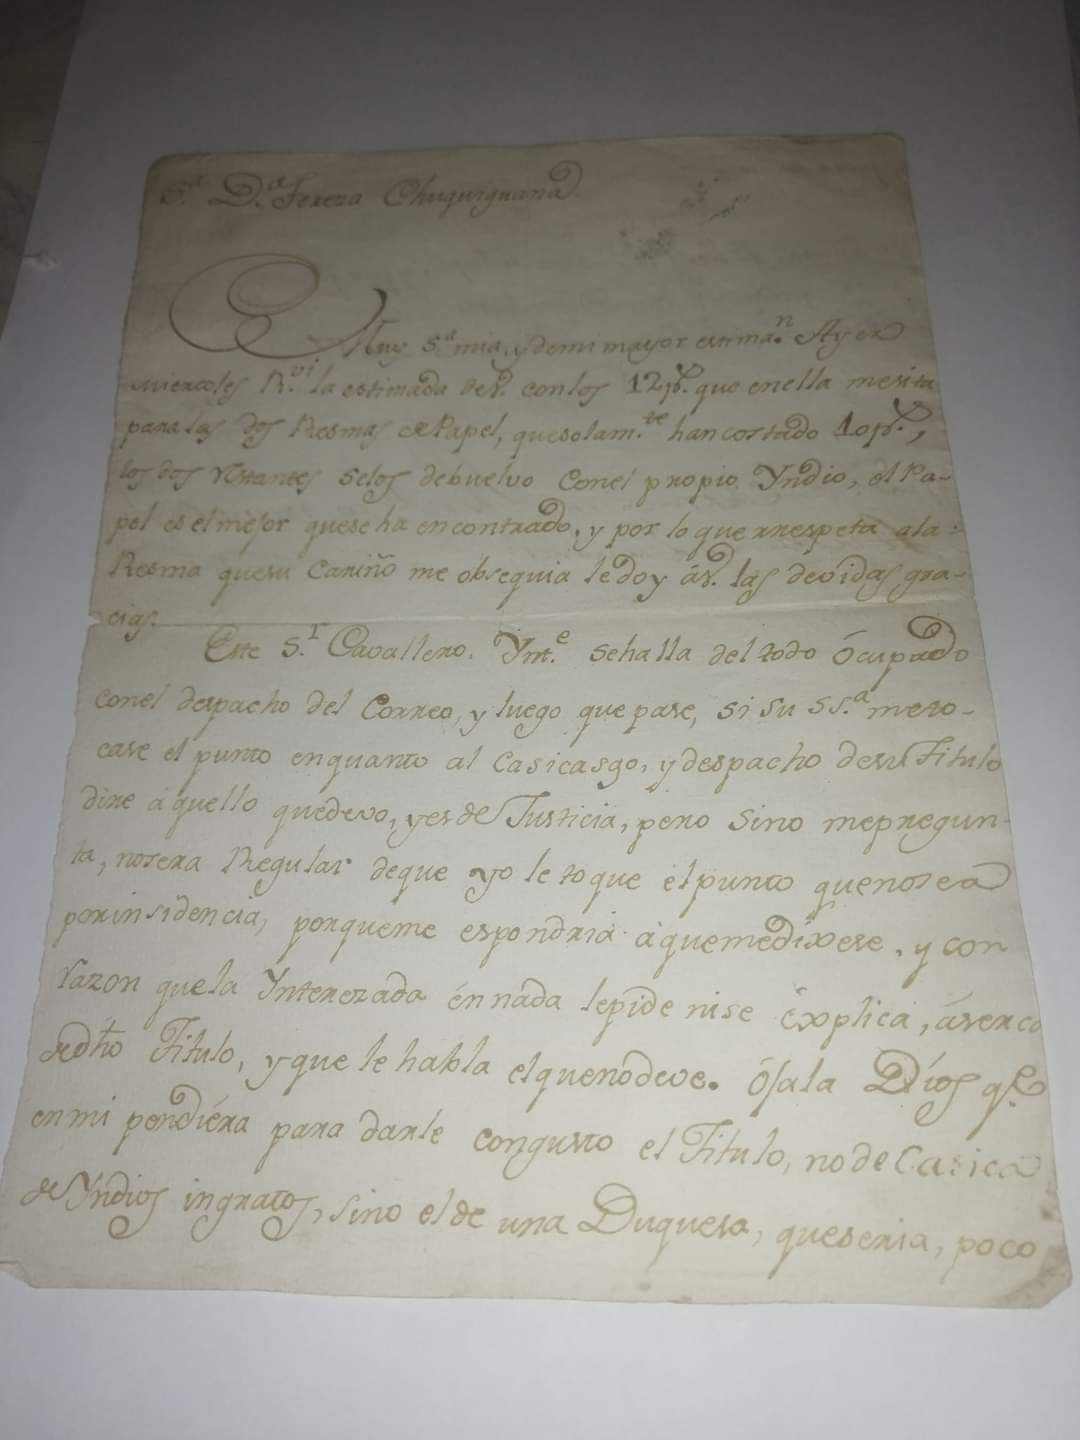 S.ª D.ª Tereza Chuquiguana
Muy S.ª mia, y de mi mayor estima.n Ayer
miercoles R.vi la estimada de V. con los 12 p.s que en ella mesita
para las dos Resmas de Papel, que solam.te han costado 10 p.s,
los dos restantes se los debuelvo con el propio Yndio, el Pa-
pel es el mejor que se ha encontrado, y por lo que rrespeta a la
Resma que su Cariño me obsequia le doy á V. las devidas gra-
cias.
Este S.r Cavallero Ynt.e se halla del todo ócupado
con el despacho del Correo, y luego que pase, si su SS.ª me to-
case el punto en quanto al Casicasgo, y despacho de su Titulo
dire aquello que devo, y es de Justicia, pero sino me pregun-
ta, no sera Regular de que yo le toque el punto que no sea
por insidencia, porque me espondria á que me dixese, y con
razon que la Ynterezada én nada le pide ni se éxplica, áserca
de dho Titulo, y que le habla el que no deve. Ójala Díos q.e
en mi pendiéra para darle con gusto el Titulo, no de Casica
de Yndios ingratos, sino el de una Duquesa, que seria, poco